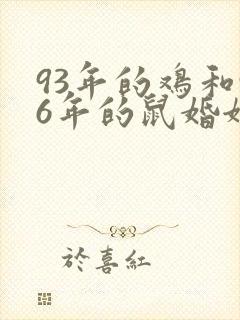 93年的鸡和
6年的鼠婚
於喜红